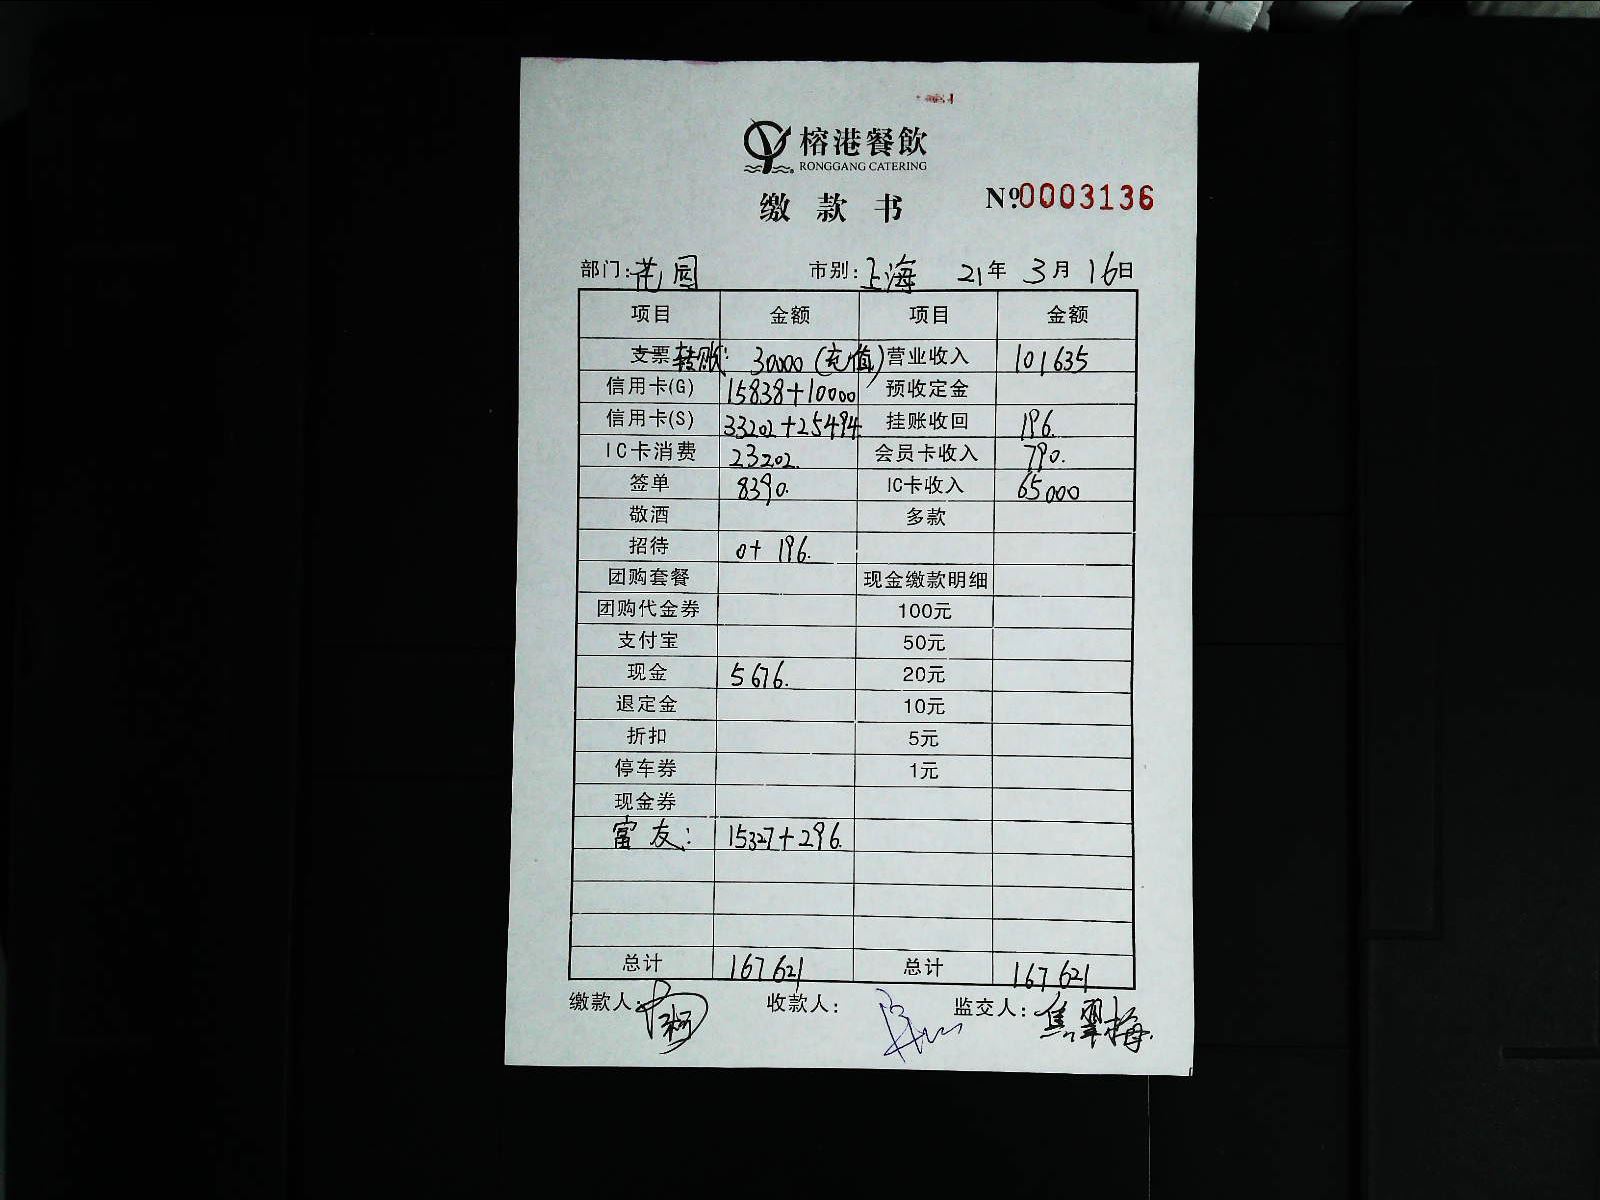 榕港餐飲
RONGGANG CATERING
缴款书
№0003136
部门:花园 市别:上海 21年 3月 16日
项目 金额 项目 金额
支票转账: 30000(充值) 营业收入 101635
信用卡(G) 15838+10000 预收定金
信用卡(S) 33202+25494 挂账收回 196.
IC卡消费 23202. 会员卡收入 790.
签单 8390. IC卡收入 65000
敬酒 多款
招待 0+196.
团购套餐 现金缴款明细
团购代金券 100元
支付宝 50元
现金 5676. 20元
退定金 10元
折扣 5元
停车券 1元
现金券
富友: 15327+296.
总计 167621 总计 167621
缴款人: 收款人: 监交人:焦翠梅.